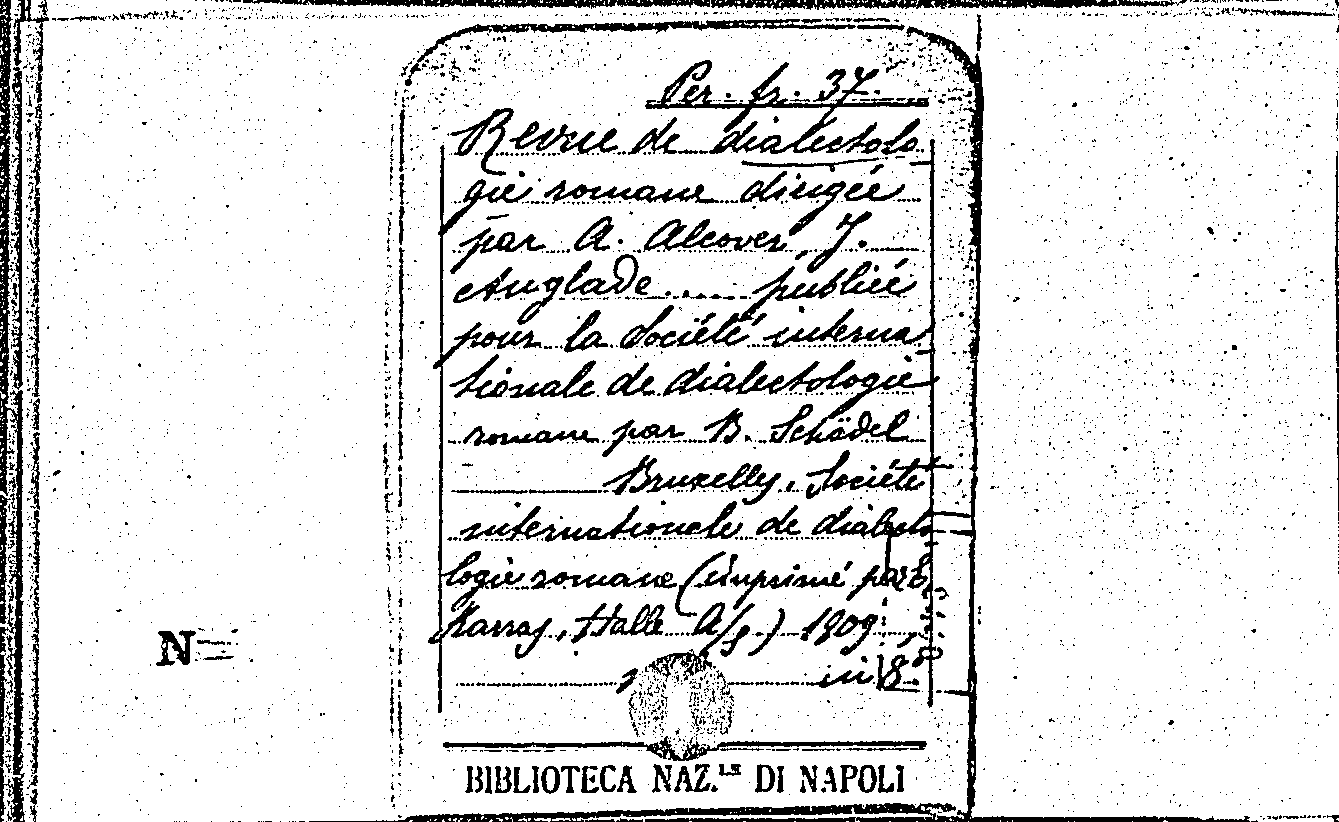 Per. fr. 37.
Revue de dialectolo
gie romane dirigée
par A. Alcover, J.
Anglade..... publiée
pour la Société interna
tionale de dialectologie
romane par B. Schädel
Bruxelles, Société
internationale de dialecto
logie romane (imprimé par E.
Karras, Halle A/S.) 1909
in 8°
N
BIBLIOTECA NAZ.LE DI NAPOLI